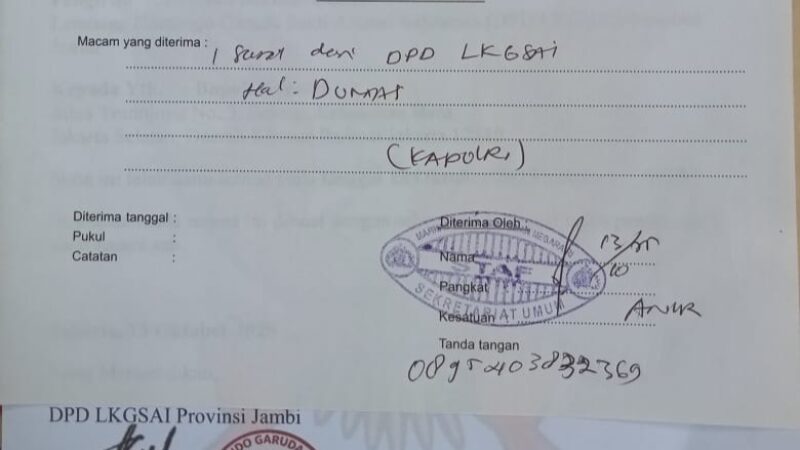 Macam yang diterima : 1 Surat dari DPD LKGSAI
Hal : DUMAS
(KAPOLRI)
Diterima tanggal :
Pukul
Catatan :
Diterima Oleh :
Nama
Pangkat
Kesatuan
Tanda tangan
STAF
SEKRETARIAT UMUM
13/
10
DPD LKGSAI Provinsi Jambi
DO GARUDA